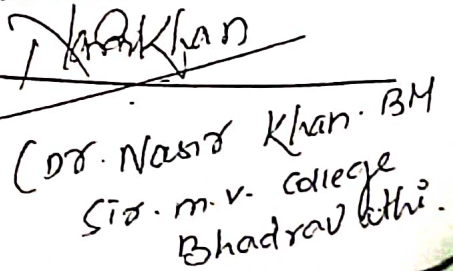 NasirKhan
(Dr. Nasir Khan. BM
Sir. m. v. College
Bhadravathi.